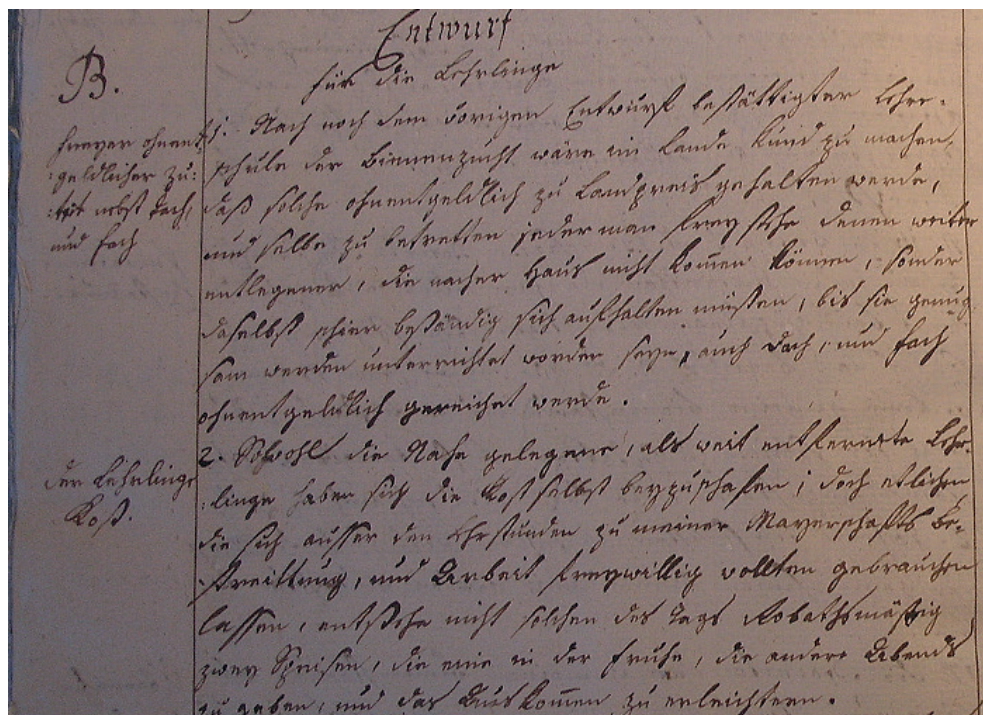 Entwurf
B.
für die Lehrlinge
freyer ohnent-
:geldlicher Zu:
:tritt nebst Dach,
und Fach
1. Nach noch dem vorigen Entwurf bestättigter Lehr-
schule der Bienenzucht wäre im Lande Kund zu machen,
daß solche ohnentgeldlich zu Landpreis gehalten werde,
und selbe zu betretten jederman frey stehe denen weiter
entlegener, die nacher Haus nicht kom̄en können, sonder
daselbst schier beständig sich aufhalten müssen, bis sie genug
sam werden unterrichtet worden seyn, auch Dach, und Fach
ohnentgeldlich gereichet werde.
der Lehrlinge
Kost.
2. Sowohl die Nahe gelegene, als weit entfernte Lehr-
:linge haben sich die Kost selbst beyzuschafen; doch etlichen
die sich ausser den Lehrstunden zu meiner Mayerschafts Be-
streittung, und Arbeit freywillig wollten gebrauchen
lassen, entstehe nicht solchen des Tags Robathsmässig
zwey Speisen, die eine in der Fruhe, die andere Abends
zu geben, und das Auskom̄en zu erleichtern.